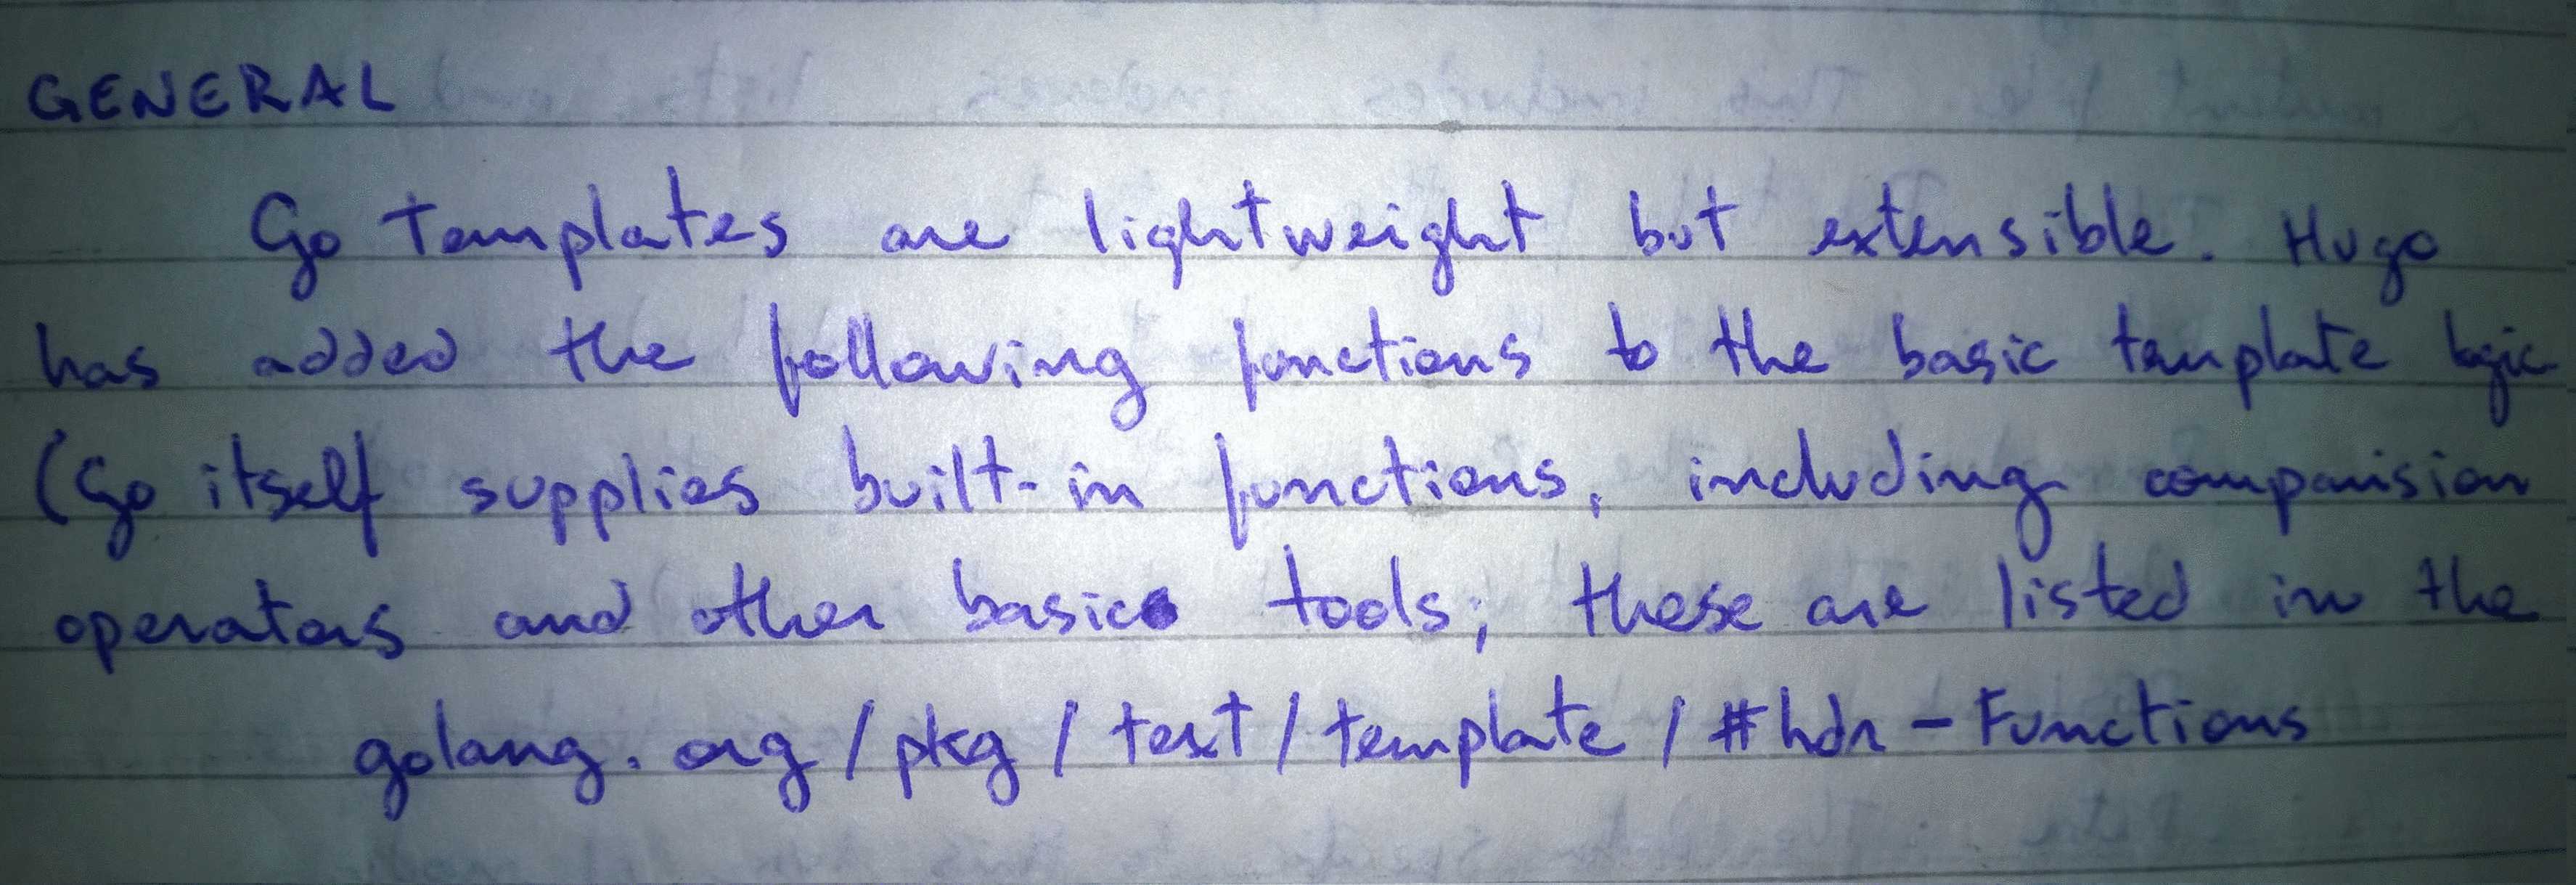 GENERAL
Go templates are lightweight but extensible. Hugo
has added the following functions to the basic template logic
(Go itself supplies built-in functions, including comparision
operators and other basic tools; these are listed in the
golang.org/pkg/text/template/#hdr-Functions